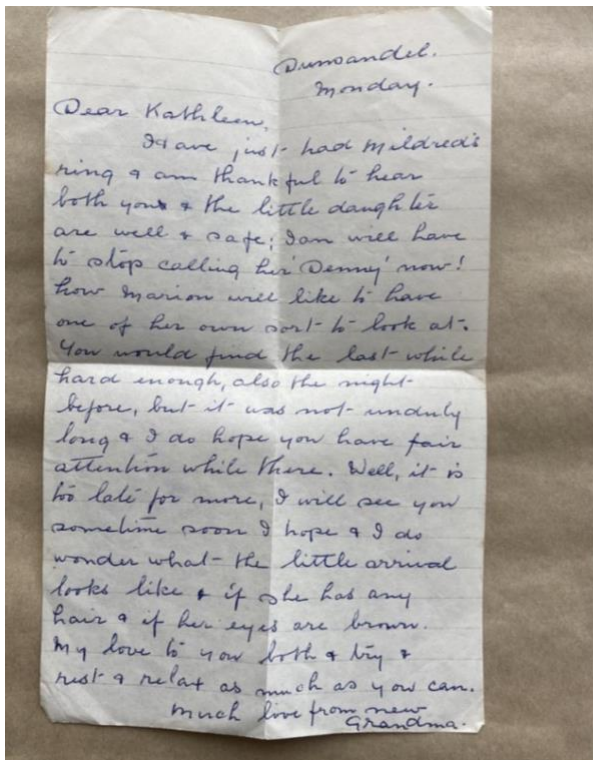 Dunsandel.
Monday.
Dear Kathleen,
Have just had Mildred's
ring & am thankful to hear
both you & the little daughter
are well & safe; Ian will have
to stop calling her 'Denney' now!
how Marion will like to have
one of her own sort to look at.
You would find the last while
hard enough, also the night
before, but it was not unduly
long & I do hope you have fair
attention while there. Well, it is
too late for more, I will see you
sometime soon I hope & I do
wonder what the little arrival
looks like & if she has any
hair & if her eyes are brown.
My love to you both & try &
rest & relax as much as you can.
Much love from new
Grandma.